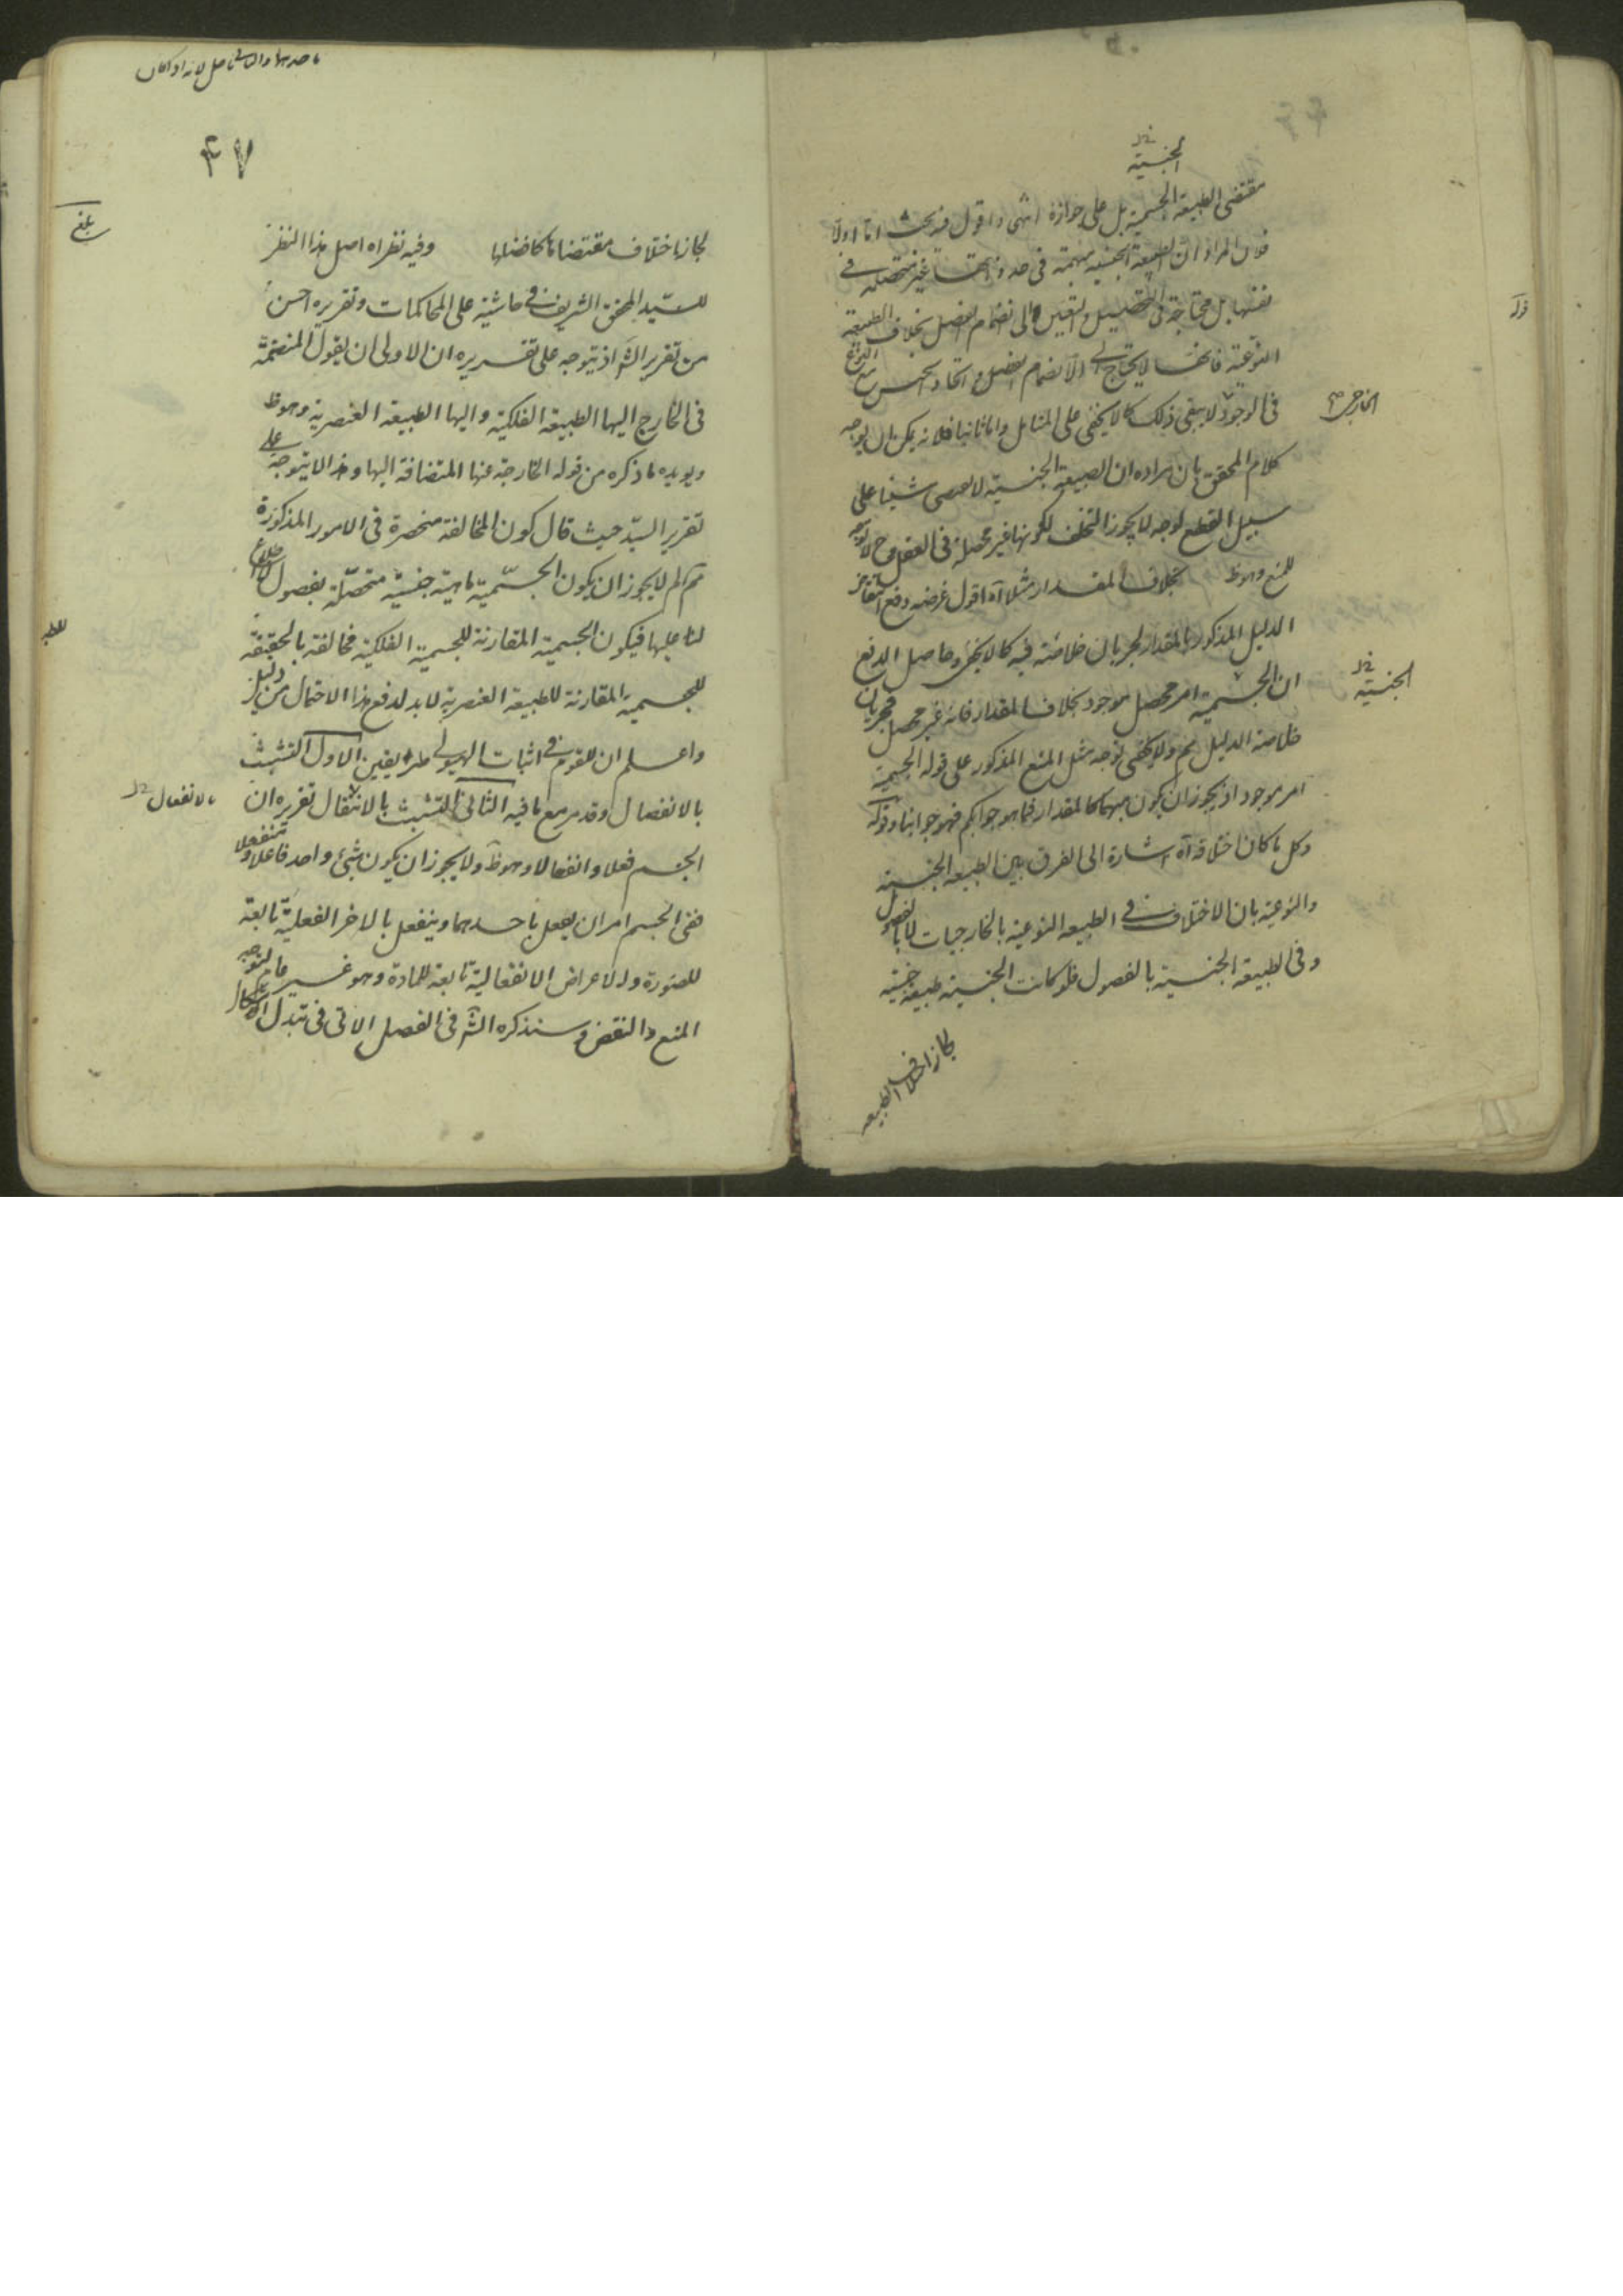 الجنسية
مقتضى الطبيعة الجسمية بل على جوازه انتهى واقول فيه بحث اما اولا
فلان المراد ان الطبيعة الجنسية مبهمة فى حد ذاتها غير متحصلة فى
نفسها بل محتاجة فى التحصيل والتعين الى انضمام الفصل بخلاف الطبيعة
النوعية فانها لا يحتاج الى الانضمام الفصل واتحاد الجنس مع النوع
فى الوجود لا ينفى ذلك كما لا يخفى على المتامل واما ثانيا فلانه يمكن ان يوجه
الخارجى
كلام المحقق بان مراده ان الطبيعة الجنسية لا تقتضى شيئا على
سبيل القطع لوجه لا يجوز التخلف لكونها غير محصلة فى العقل وح لا توجه
للمنع وهو ظ بخلاف المقدار مثلا آه اقول غرضه دفع انتقاض
الدليل المذكور بالمقدار لجريان خلاصته فيه كما لا يخفى وحاصل الدفع
ان الجسمية امر محصل موجود بخلاف المقدار فانه غير محصل فجريان
الجنسية
خلاصة الدليل ثم ولا يخفى توجه مثل المنع المذكور على قوله الجسمية
امر موجود اذ يجوز ان يكون مبهما كالمقدار فما هو جوابكم فهو جوابنا وقوله
وكل ما كان اختلافه آه اشارة الى الفرق بين الطبيعة الجنسية
والنوعية بان الاختلاف فى الطبيعة النوعية بالخارجيات لا بالفصول
وفى الطبيعة الجنسية بالفصول فلو كانت الجنسية طبيعة جنسية
لجاز اختلاف الطبيعة
٤٧
لجاز اختلاف مقتضاها كافضلها وفيه نظر آه اصل هذا النظر
بلغ
للسيد المحقق الشريف فى حاشية على المحاكمات وتقريره احسن
من تقرير الش اذ يتوجه على تقريره ان الاولى ان يقول المنضمة
فى الخارج اليها الطبيعة الفلكية واليها الطبيعة العنصرية وهو ظ
ويويده ما ذكره من قوله الخارجة عنها المتضافة اليها وهذا لا يتوجه على
تقرير السيد حيث قال كون المخالفة منحصرة فى الامور المذكورة
ثم لم لا يجوز ان يكون الجسمية ماهية جنسية متحصلة بفصول لا اطلاع
لنا عليها فيكون الجسمية المقارنة للجسمية الفلكية مخالفة بالحقيقة
للجسمية المقارنة للطبيعة العنصرية لا بد لدفع هذا الاحتمال من دليل
واعلم ان للقوم فى اثبات الهيولى طريقين الاول التشبث
بالانفصال وقد مر مع ما فيه الثانى التشبث بالانتقال تقريره ان
بالانفعال
الجسم فعلا وانفعالا وهو ظ ولا يجوز ان يكون شئ واحد فاعلا ومنفعلا
ففى الجسم امران يفعل باحدهما وينفعل بالاخر الفعلية تابعة
للصورة والاعراض الانفعالية تابعة للمادة وهو غير تام لتوجه
المنع والنقض وسنذكره الش فى الفصل الاتى فى تبدل الاشكال